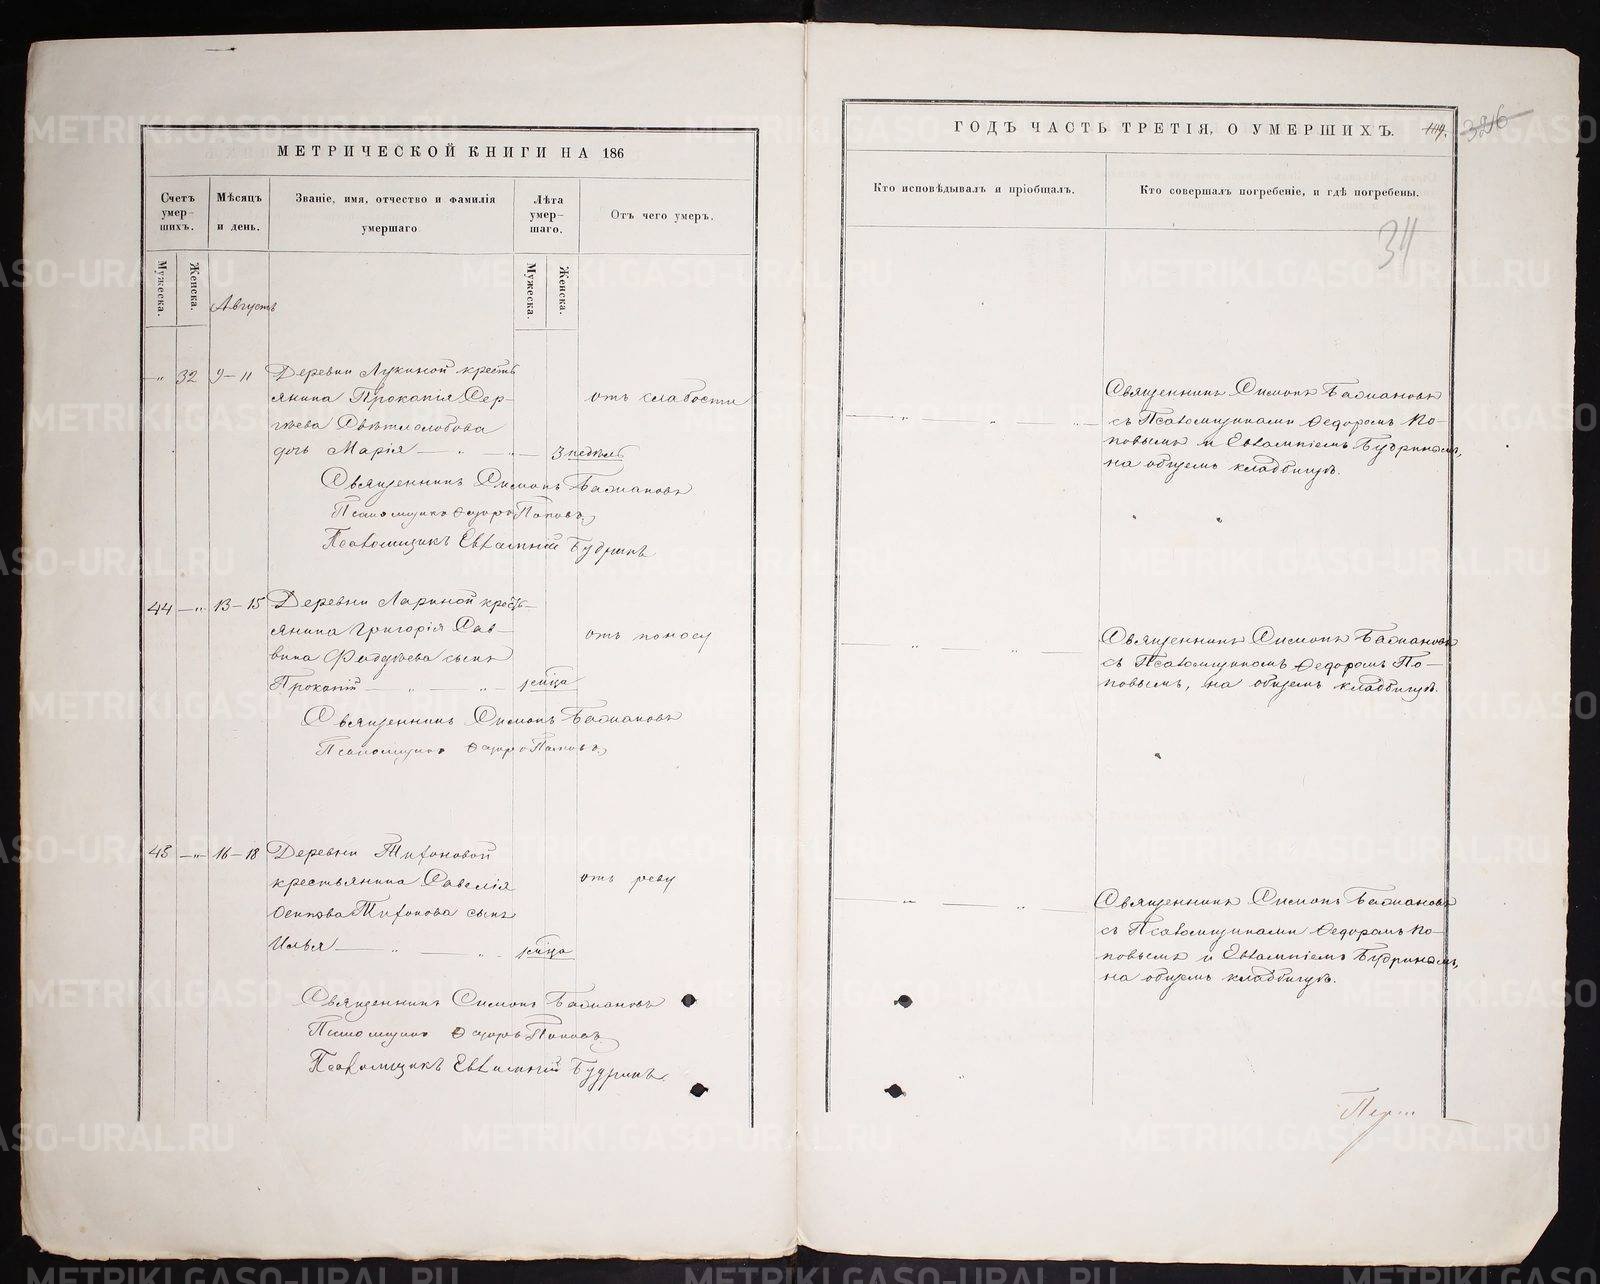 МЕТРИЧЕСКОЙ КНИГИ НА 186
Счетъ умер-шихъ.
Мѣсяцъ и день.
Званіе, имя, отчество и фамилія умершаго
Лѣта умер-шаго.
Отъ чего умеръ.
Мужеска.
Женска.
Августъ
Мужеска.
Женска.
— „ 32 9–11 Деревни Лукиной кресть
янина Прокапія Сер- отъ слабости
гѣева Свѣтлолобова
дочь Марія — „ — „ — 3 недѣль
Священникъ Симонъ Баженовъ
Псаломщикъ Ѳедоръ Поповъ
Псаломщикъ Евлампій Будринъ
44 — „ 13–15 Деревни Лариной кресть-
янина Григорія Сав- отъ поносу
вина Фаддѣева сынъ
Прокапій — „ — „ — 1 мѣсца
Священникъ Симонъ Баженовъ
Псаломщикъ Ѳедоръ Поповъ
45 — „ 16–18 Деревни Тихоновой
крестьянина Савелія отъ реву
Осипова Тихонова сынъ
Илья — „ — „ 1 мѣсца
Священникъ Симонъ Баженовъ
Псаломщикъ Ѳедоръ Поповъ
Псаломщикъ Евлампій Будринъ
ГОДЪ ЧАСТЬ ТРЕТІЯ, О УМЕРШИХЪ.
119. 326
Кто исповѣдывалъ и пріобщалъ.
Кто совершалъ погребеніе, и гдѣ погребены.
34
Священникъ Симонъ Баженовъ
съ Псаломщиками Ѳедоромъ По-
повымъ и Евлампіемъ Будринымъ,
на общемъ кладбищѣ.
Священникъ Симонъ Баженовъ
съ Псаломщикомъ Ѳедоромъ По-
повымъ, на общемъ кладбищѣ.
Священникъ Симонъ Баженовъ
съ Псаломщиками Ѳедоромъ По-
повымъ и Евлампіемъ Будринымъ,
на общемъ кладбищѣ.
METRIKI.GASO-URAL.RU